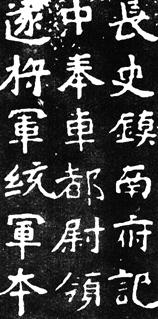 長史鎮南府記
中奉車都尉領
遂将軍統軍本